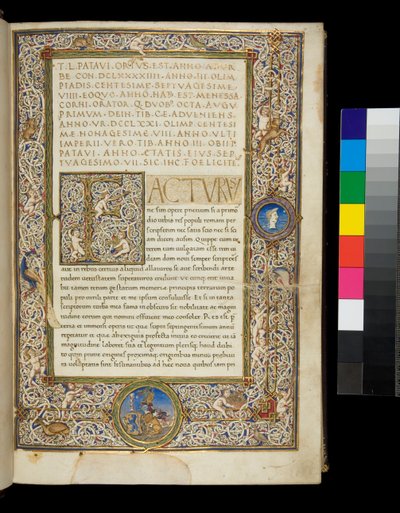 T. L. PATAVI. ORTVS. EST. ANNO. A. VR
BE. CON. DCLXXXXIIII. ANNO. III. OLIM
PIADIS. CENTESIME. SEPTVAGESIME.
VIIII. EOQVE. ANNO. HAB. EST. MENESSA.
CORNI. ORATOR. QVOB. OCTA. AVGV
PRIMVM. DEIN. TIB. CÆ. ADVENIENS.
ANNO. VR. DCCLXXI. OLIMP. CENTESI
ME. NONAGESIME. VIII. ANNO. VLTI
IMPERII. VERO. TIB. ANNO. IIII. OBIIT.
PATAVI. ANNO. ÆTATIS. EIVS. SEP
TVAGESIMO. VII. SIC. INC. FOELICITE.
FACTVRV
ne sim opere precium si a primo
dio urbis res populi romani per
scripserim nec satis scio nec si sci
am dicere ausim. Quippe cum ue
terem tum uulgatam esse rem ui
deam dum noui semper scriptores
aut in rebus certius aliquid allaturos se aut scribendi arte
rudem uetustatem superaturos credunt. Vt cunque erit iuua
bit tamen rerum gestarum memoriæ principis terrarum po
puli pro uirili parte et me ipsum consuluisse. Et si in tanta
scriptorum turba mea fama in obscuro sit nobilitate ac magni
tudine eorum qui nomini officient meo consoler. Res est p
terea et immensi operis ut quæ supra septingentesimum annum
repetatur et quæ ab exiguis profecta initiis eo creuerit ut iam
magnitudine laboret sua et legentium plerisque haud dubito
quin primæ origines proximaque originibus minus præbitura
uoluptatis sint festinantibus ad hæc noua quibus iam pri